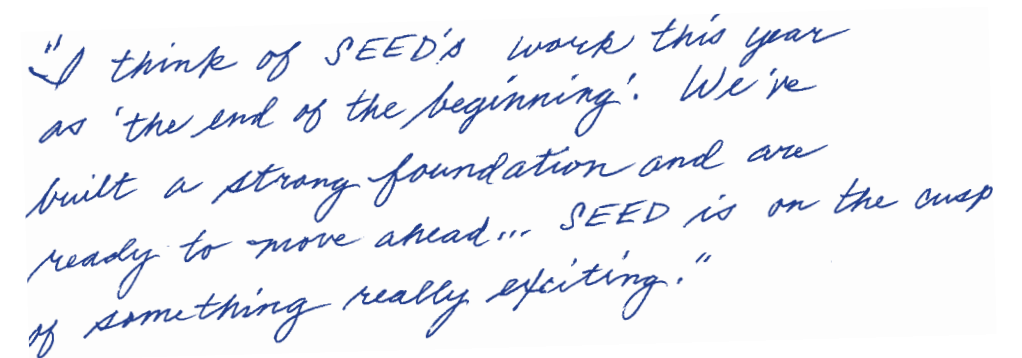 "I think of SEED's work this year
as 'the end of the beginning'. We've
built a strong foundation and are
ready to move ahead... SEED is on the cusp
of something really exciting."